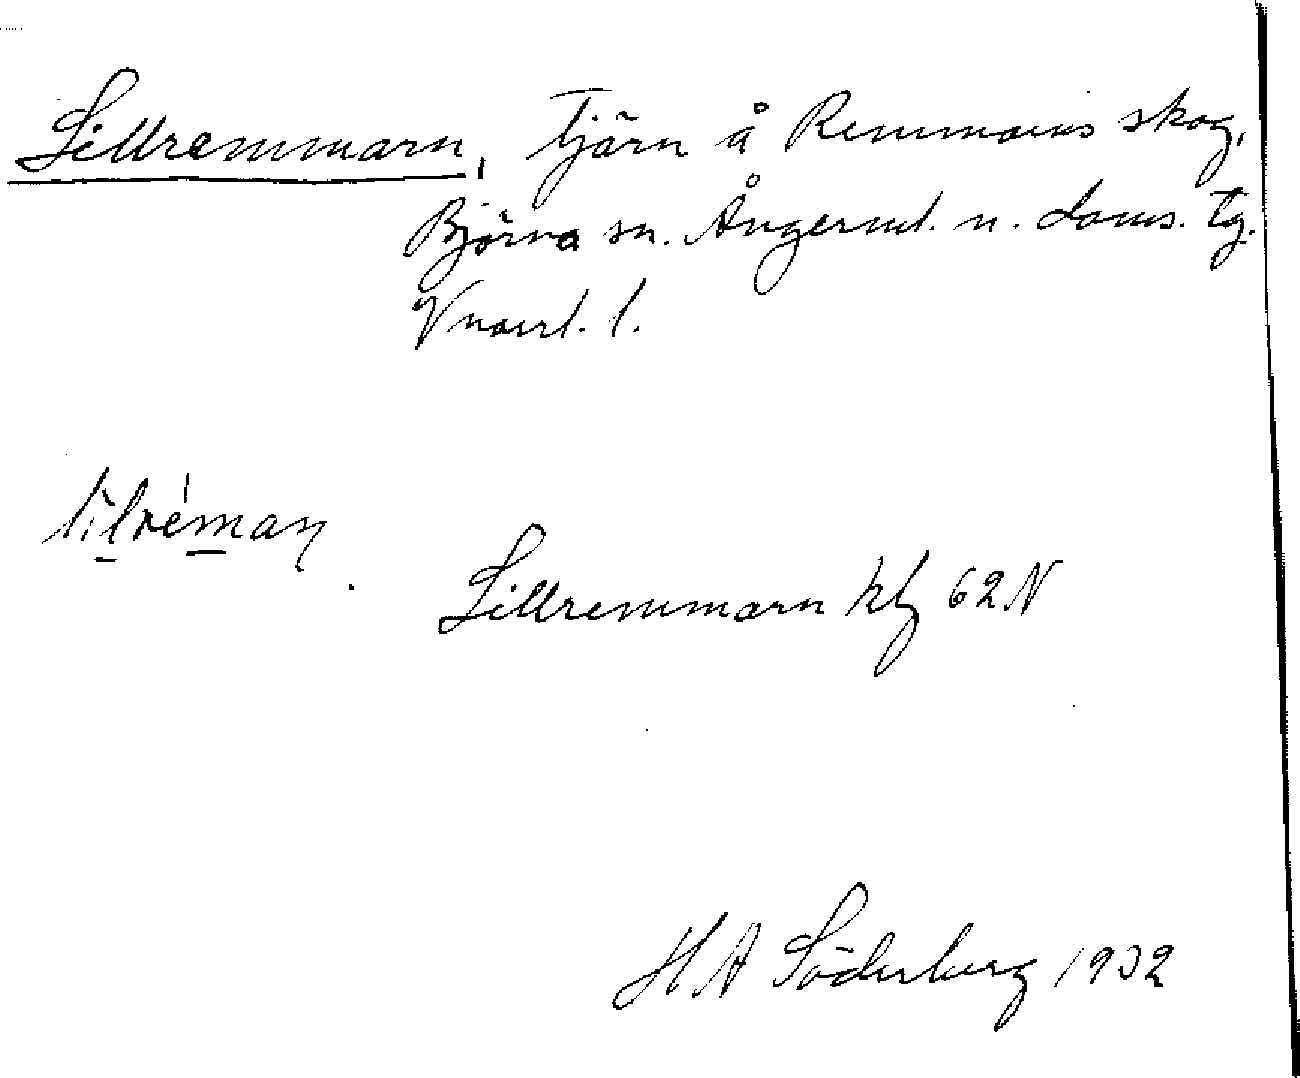 Lillremmarn, Tjärn å Remmarns skog,
Björna sn. Ångerml. n. doms. tg.
Vnorrl. l.
lilréman
Lillremmarn kbl 62 N
H A Söderberg 1932